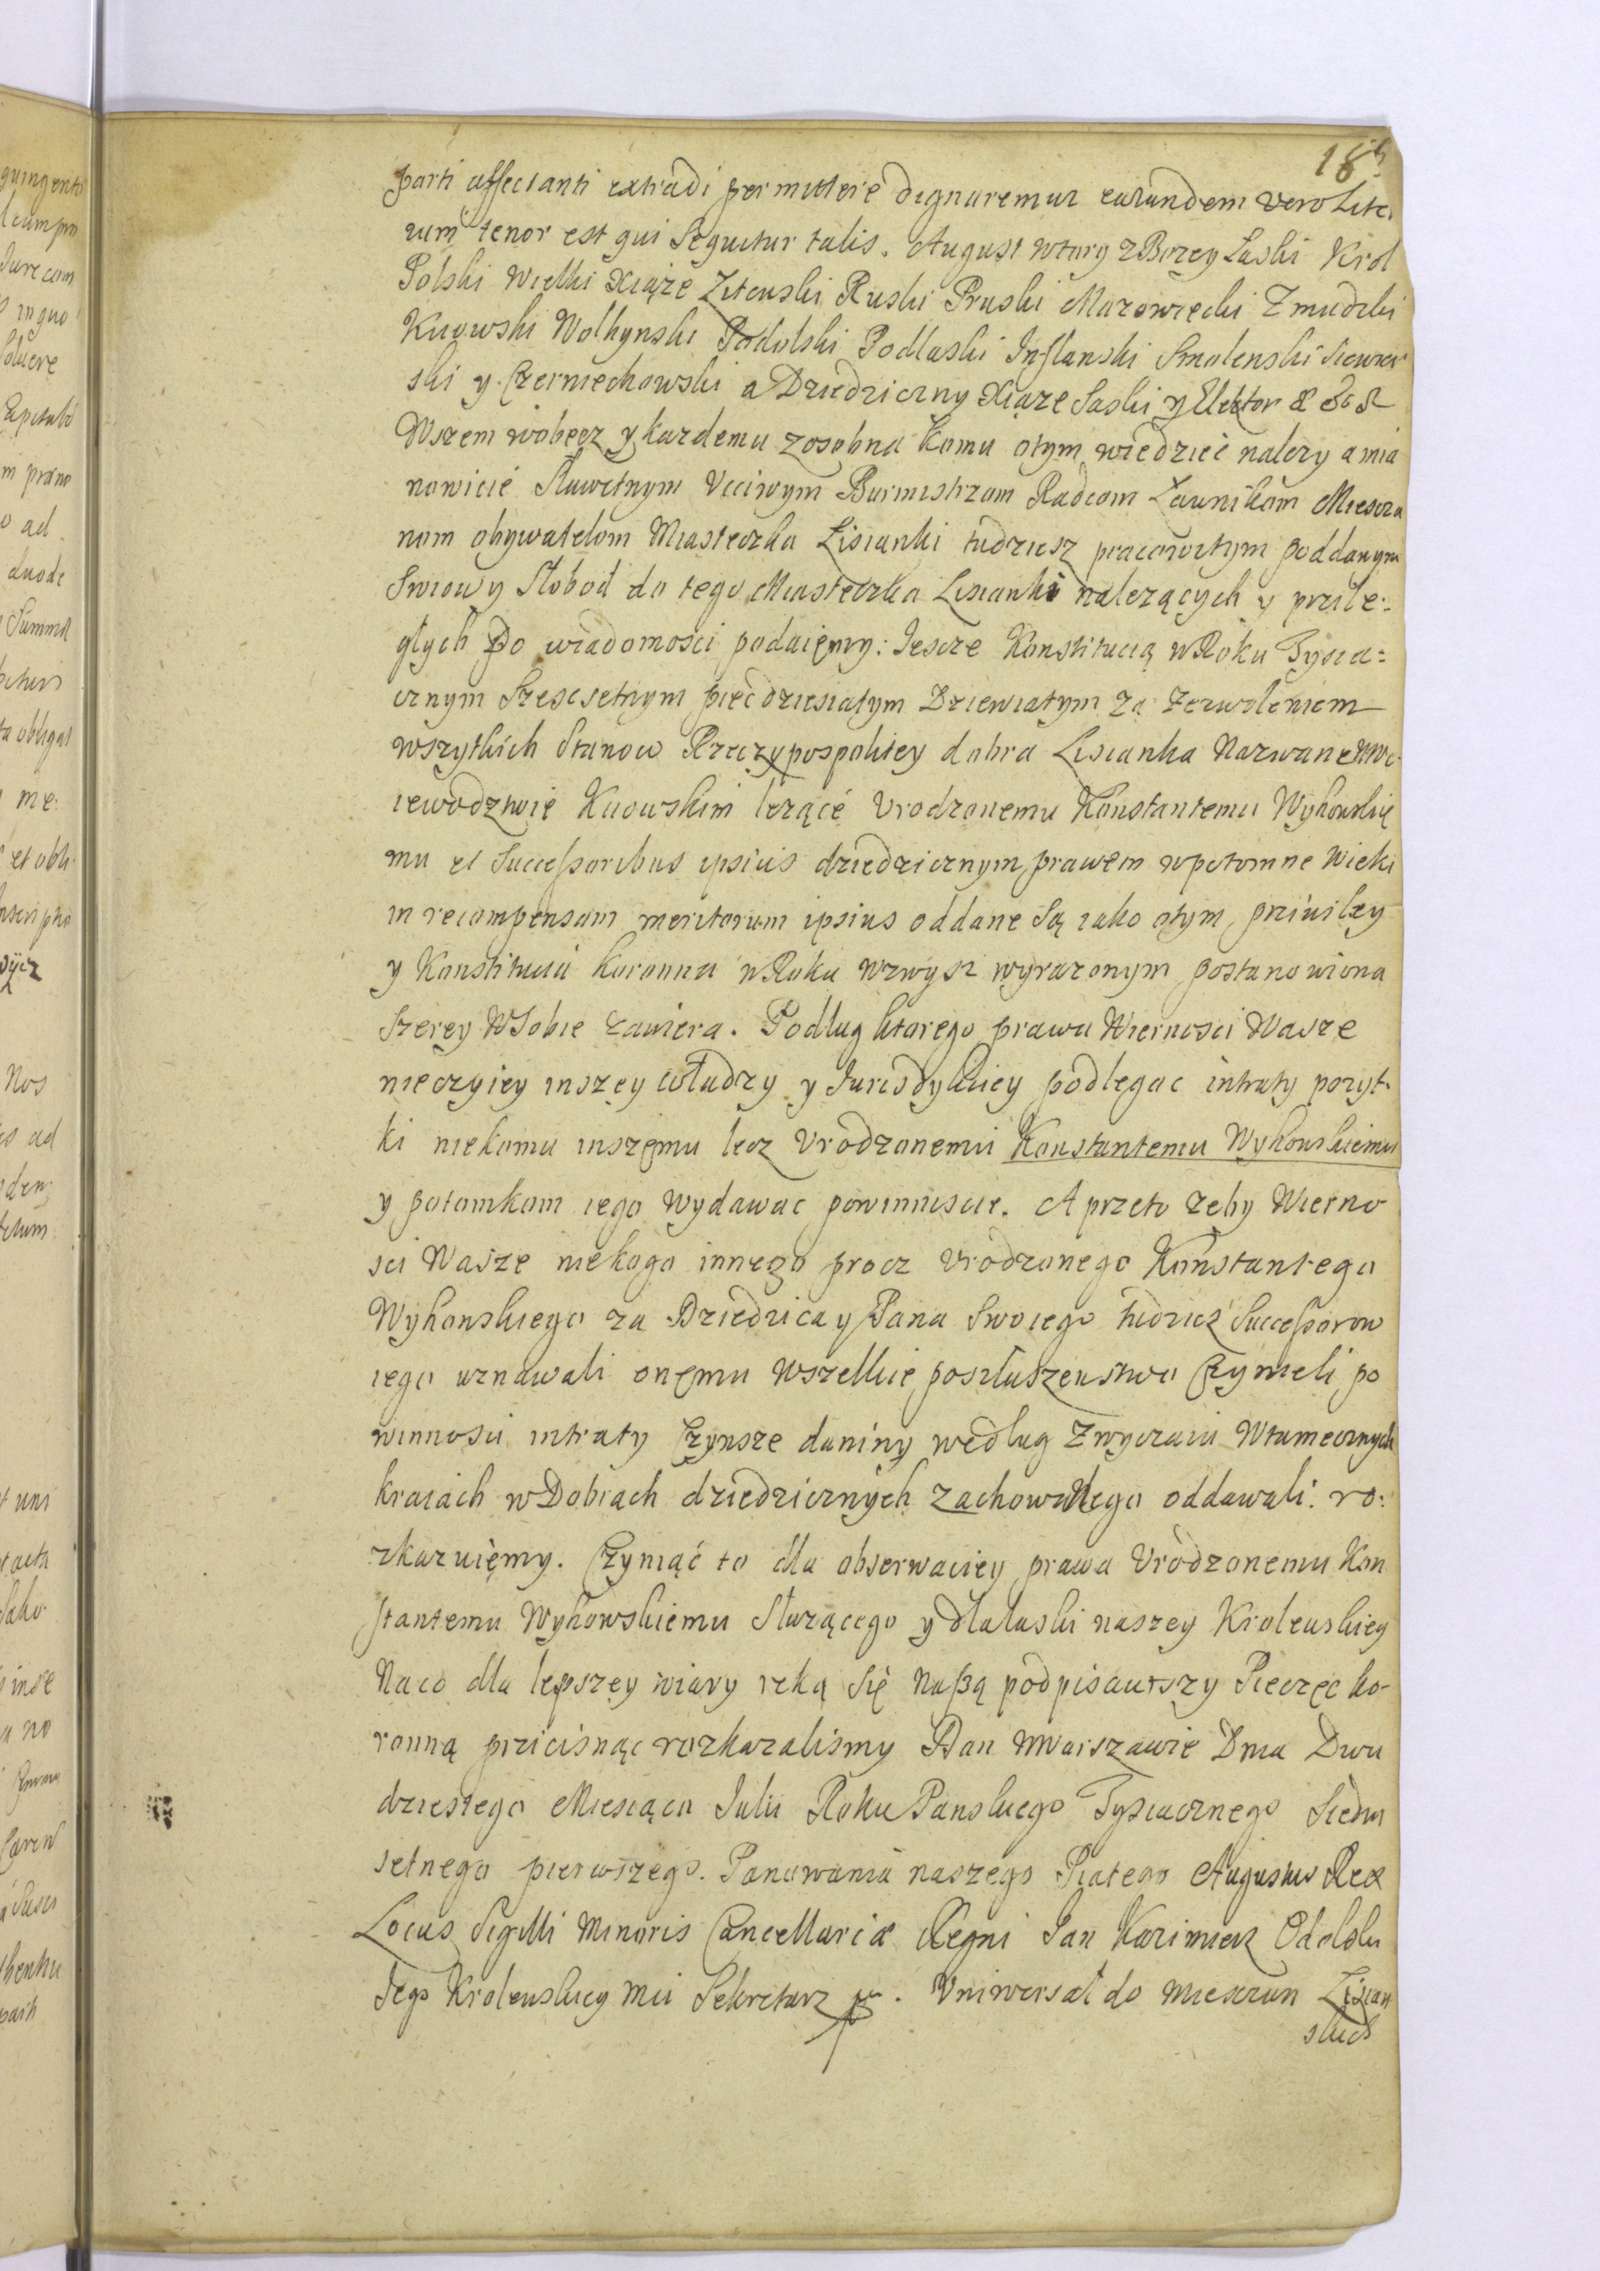 18
parti affectanti extradi permittere dignaremur earundem vero Lite
rum tenor est qui Sequitur talis. August wtory z Bozey Laski Krol
Polski Wielki Xiąże Litewski Ruski Pruski Mazowiecki Zmudzki
Kiiowski Wolhynski Podolski Podlaski Inflanski Smolenski Siewier
ski y Czerniechowski a Dziedziczny Xiąze Saski y Elektor & &c &
Wszem wobecz y kazdemu zosobna komu otym wiedzieć nalezy a mia
nowicie Sławetnym Vcciwym Burmistrzom Radcom Ławnikom Miescza
nom obywatelom Miasteczka Lisianki tudziesz pracowitym poddanym
Sniow y Słobod do tego Miasteczka Lisianki nalezących y przile:
głych Do wiadomosci podaiemy: Iescze Konstitucią w Roku Tysia=
cznym Szescsetnym pięćdziesiatym Dziewiatym za zezwoleniem
wszytkich Stanow Rzeczypospolitey dobra Lisianka Nazwane w Wo:
iewodztwie Kiiowskim lezące Vrodzonemu Konstantemu Wyhowskie
mu et Successoribus ipsius dziedzicznym prawem w potomne wieki
in recompensam meritorum ipsius oddane Są iako otym priuiley
y Konstitucia koronna w Roku wzwysz wyrazonym postanowiona
Szerey W Sobie zawiera. Podług ktorego prawa Wiernosci Wasze
nieczyiey inszey władzy y Jurisdykciey podlegac intraty pozyt:
ki niekomu inszemu lecz Vrodzonemu Konstantemu Wyhowskiemu
y potomkom iego wydawac powinniscie. A przeto zeby Wierno
sci Wasze niekogo innego procz Vrodzonego Konstantego
Wyhowskiego za Dziedzica y Pana Swoiego tudziesz Successorow
iego uznawali onemu wszelkie posłuszenstwo Czynieli po
winnosci intraty Czynsze daniny według Zwyczaiu w tamecznych
kraiach w Dobrach dziedzicznych zachowałego oddawali: ro:
zkazuięmy. Czyniąć to dla obserwaciey prawa Vrodzonemu Kon
stantemu Wyhowskiemu Słuzącego y dla łaski naszey Krolewskiey
Na co dla lepszey wiary ręką Się naßą podpisawszy Pieczęc ko-
ronną pricisnąc rozkazalismy Dan w Warszawie Dnia Dwu
dziestego Miesiąca Iulii Roku Panskiego Tysiacznego Siedm
setnego pierwszego. Panowania naszego Piatego Augustus Rex
Locus Sigilli Minoris Cancellariæ Regni Jan Kazimierz
Jego Krolewskiey Mci Sekretarz. Vniwersał do Mieszczan Lisian
skich